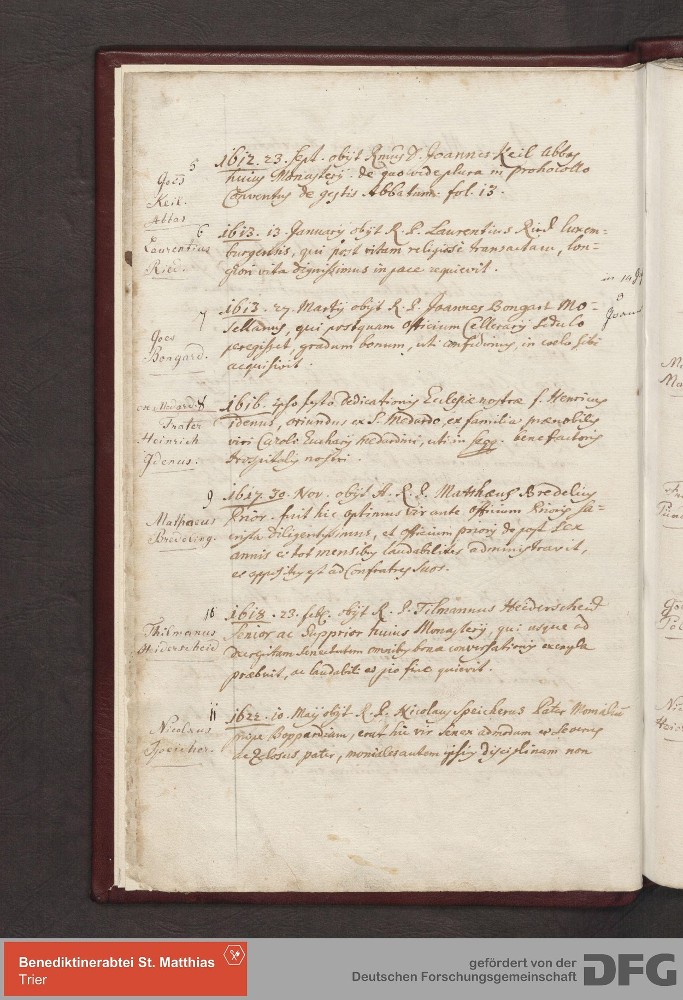 5
Joēs
Keil.
Abbas
1612. 23. sept. obijt Rmus D. Joannes Keil Abbas
huius Monasterij. de quo vide plura in prothocollo
Conventus de gestis Abbatum. fol. 13.
6
Laurentius
Ried.
1613. 13. January obijt R. P. Laurentius Ried luxem-
burgensis, qui post vitam religiosè transactam, lon-
giori vita dignissimus in pace requievit.
7
Joēs
Bongard.
1613. 27. Martij obijt R. P. Joannes Bongart Mo-
sellanus, qui postquam officium Cellerarij sedulo
peregisset, gradum bonum, uti confidimus, in coelo sibi
acquisivit.
8
Frater
Heinrich
Idenus.
1616. ipso festo dedicationis Ecclesiae nostrae f. Henricus
idenus, oriundus ex S. Medardo, ex familia praenobilis
viri Caroli Eucharij Medardini, uti in seqq. benefactoris
Hospitalis nostri.
9
Mathaeus
Bredering.
1617. 30. Nov. obijt A. R. P. Matthaeus Bredelius
Prior. fuit hic optimus vir ante officium Prioris sa-
crista diligentissimus, et officium prioris de post sex
annis et tot mensibus laudabiliter administravit,
et appositus est ad Confratres suos.
10
Thilmanus
Heiderscheid
1618. 23. feb. obijt R. P. Tilmannus Heiderscheid
Senior ac Supprior huius Monasterij, qui usque ad
decrepitam senectutem omnibus bona conversationis exempla
praebuit, ac laudabili et pio fine quievit.
11
Nicolaus
Speicher.
1622. 10. Maij obijt R. P. Nicolaus Speicherus Pater Monialium
prope Boppardiam, erat hic vir senex admodum et severus
ac Zelosus pater, moniales autem ipsius disciplinam non
Benediktinerabtei St. Matthias
Trier
gefördert von der
Deutschen Forschungsgemeinschaft
DFG